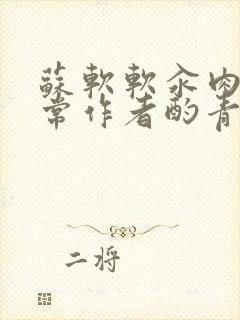 蘇軟軟汆肉
常作者酌青
二将